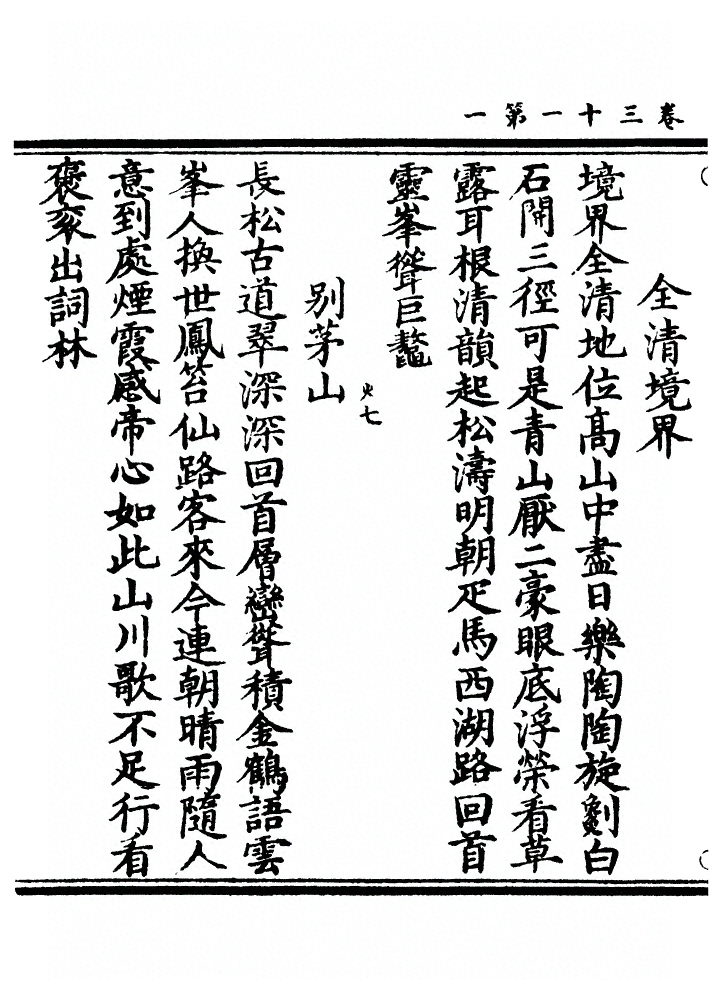 卷三十一第一
全清境界
境界全清地位高山中盡日樂陶陶旋劖白
石開三徑可是青山厭二豪眼底浮榮看草
露耳根清韻起松濤明朝疋馬西湖路回首
靈峯聳巨鼇
火七
別茅山
長松古道翠深深回首層巒聳積金鶴語雲
峯人換世鳳笞仙路客來今連朝晴雨隨人
意到處煙霞感帝心如此山川歌不足行看
褒袞出詞林